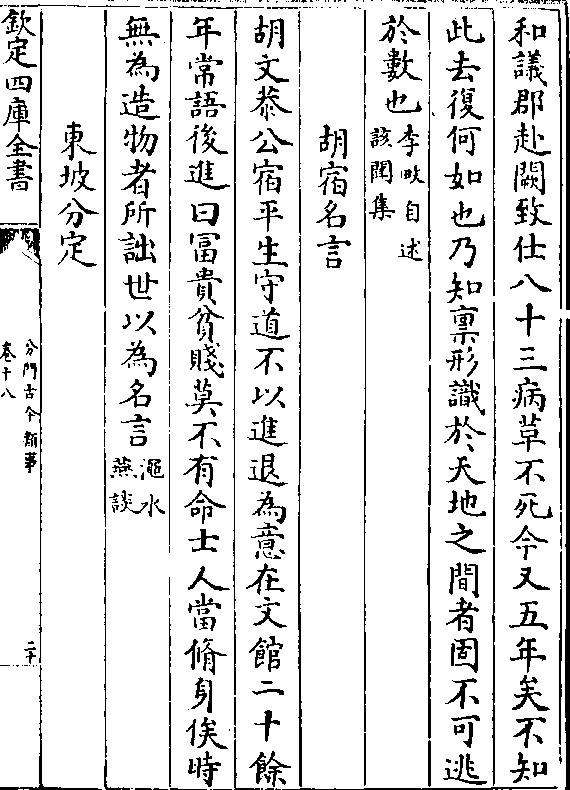 和議郡赴闕致仕八十三病草不死今又五年矣不知
此去復何如也乃知稟形識於天地之間者固不可逃
於數也李畋自述
該聞集
胡宿名言
胡文恭公宿平生守道不以進退為意在文館二十餘
年常語後進曰富貴貧賤莫不有命士人當脩身俟時
無為造物者所詘世以為名言澠水
燕談
東坡分定
欽定四庫全書
分門古今類事
卷十八
二十